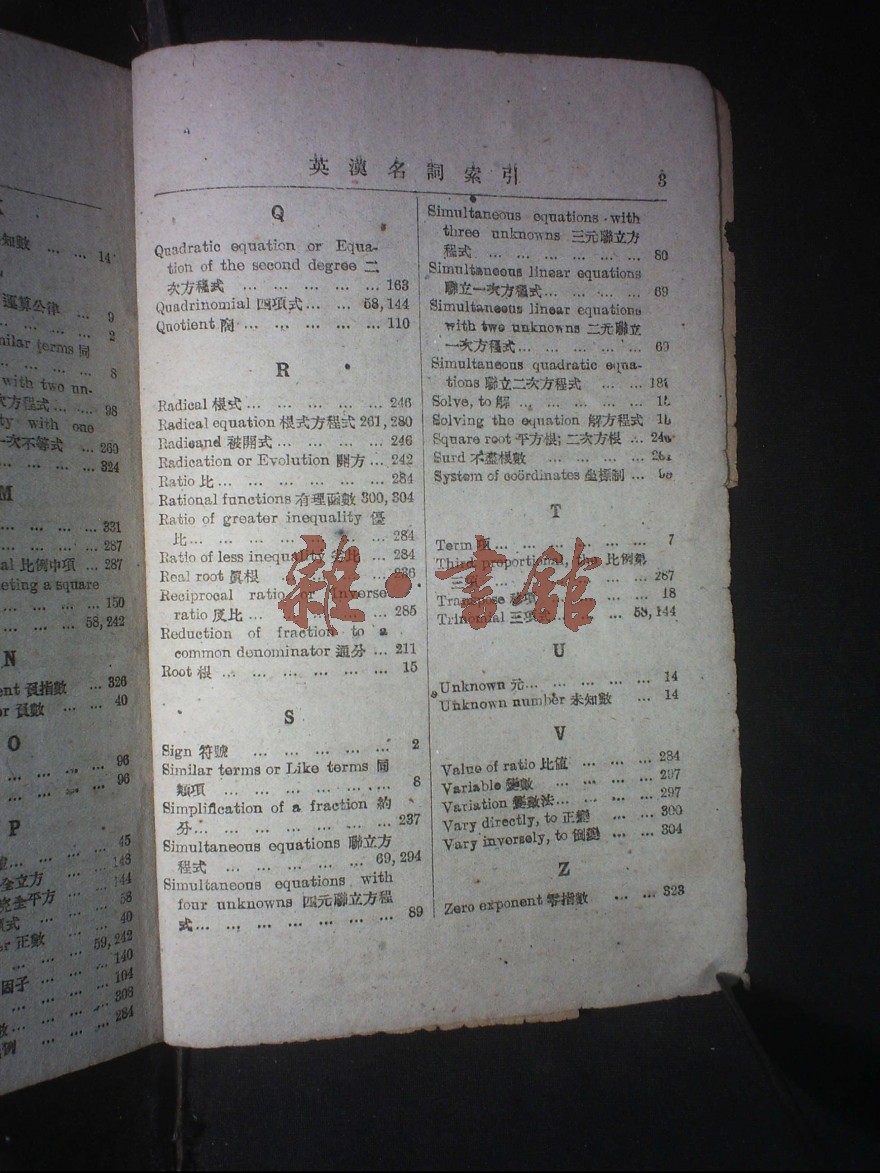 知數 ... ... 14
運算公律 ... 9
... ... ... ... 2
similar terms 同
... ... ... ... 8
with two un-
方程式 ... ... 98
with one
一次不等式 ... 260
... ... ... ... 324
M
... ... ... ... 331
... ... ... ... 287
al 比例中項 ... 287
eting a square
... ... ... ... 150
... ... ... 58,242
N
ent 負指數 ... 326
er 負數 ... ... 40
O
... ... ... ... 96
... ... ... ... 96
P
... ... ... ... 45
全立方 ... ... 148
完全平方 ... ... 144
項式 ... ... ... 58
er 正數 ... ... 40
... ... ... 59,242
... ... ... ... 140
因子 ... ... ... 104
... ... ... ... 308
例 ... ... ... 284
英漢名詞索引 3
Q
Quadratic equation or Equa-
tion of the second degree 二
次方程式 ... ... ... ... ... 163
Quadrinomial 四項式 ... ... 58,144
Quotient 商 ... ... ... ... ... 110
R
Radical 根式 ... ... ... ... ... 246
Radical equation 根式方程式 261,280
Radicand 被開式 ... ... ... ... 246
Radication or Evolution 開方 ... 242
Ratio 比 ... ... ... ... ... ... 284
Rational functions 有理函數 300,304
Ratio of greater inequality 優
比 ... ... ... ... ... ... ... 284
Ratio of less inequality 劣比 ... 284
Real root 實根 ... ... ... ... 236
Reciprocal ratio or Inverse
ratio 反比 ... ... ... ... ... 285
Reduction of fraction to a
common denominator 通分 ... 211
Root 根 ... ... ... ... ... ... 15
S
Sign 符號 ... ... ... ... ... 2
Similar terms or Like terms 同
類項 ... ... ... ... ... ... 8
Simplification of a fraction 約
分 ... ... ... ... ... ... ... 237
Simultaneous equations 聯立方
程式 ... ... ... ... ... 69,294
Simultaneous equations with
four unknowns 四元聯立方程
式 ... ... ... ... ... ... ... 89
Simultaneous equations with
three unknowns 三元聯立方
程式 ... ... ... ... ... ... 80
Simultaneous linear equations
聯立一次方程式 ... ... ... ... 69
Simultaneous linear equations
with two unknowns 二元聯立
一次方程式 ... ... ... ... ... 69
Simultaneous quadratic equa-
tions 聯立二次方程式 ... ...
Solve, to 解 ... ... ... ... ...
Solving the equation 解方程式
Square root 平方根; 二次方根 ... 246
Surd 不盡根數 ... ... ... ...
System of coördinates 坐標制 ...
T
Term 項 ... ... ... ... ... ... 7
Third proportional, the 比例第
三項 ... ... ... ... ... ... 287
Transpose 移項 ... ... ... ... 18
Trinomial 三項式 ... ... ... 58,144
U
Unknown 元 ... ... ... ... ... 14
Unknown number 未知數 ... 14
V
Value of ratio 比值 ... ... ... 284
Variable 變數 ... ... ... ... 297
Variation 變數法 ... ... ... ... 297
Vary directly, to 正變 ... ... 300
Vary inversely, to 倒變 ... ... 304
Z
Zero exponent 零指數 ... ... 323
雜·書館